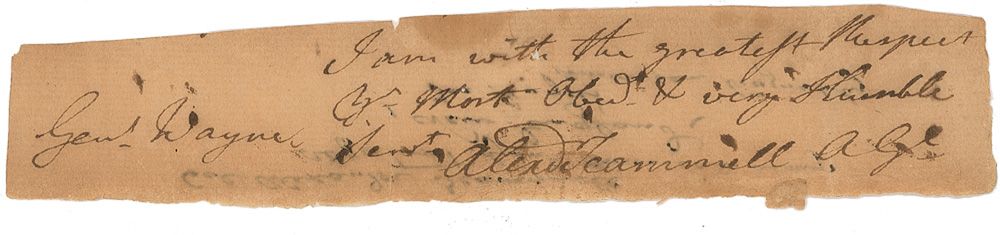 I am with the greatest Respect
Yr Most Obedt & very Humble
Genl Wayne Servt Alexr Scammell A Gl